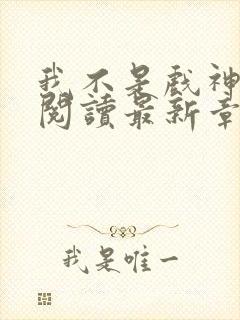 我不是戲神
閱讀最新章
我是唯一